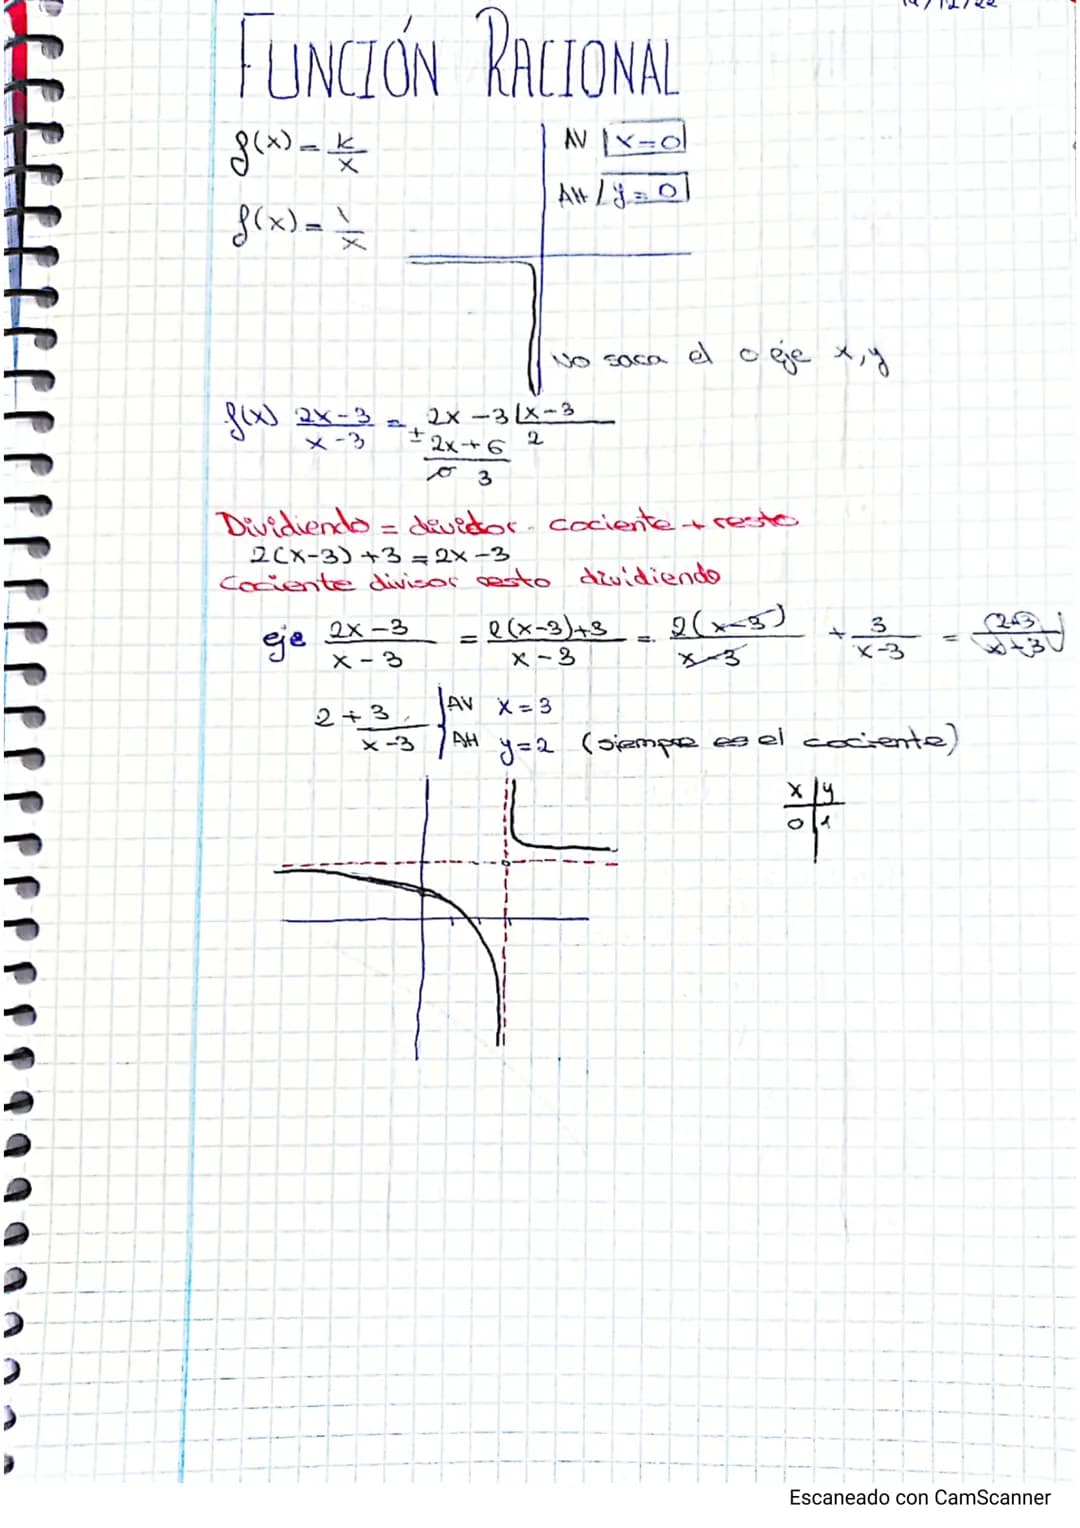 14/12/22
FUNCIÓN RACIONAL
f(x) = k/x
AV x=0
AH y=0
f(x) = 1/x
No saca el 0 eje x,y
f(x) 2x-3/x-3 = 2x -3 |x-3
± 2x+6 2
0 3
Dividiendo = dividor · cociente + resto
2(x-3) +3 = 2x -3
Cociente divisor resto dividiendo
eje 2x-3/x-3 = 2(x-3)+3/x-3 = 2(x-3)/x-3 + 3/x-3 =
2 + 3/x-3
AV x = 3
AH y=2 (siempre es el cociente)
x | y
0 | 1
Escaneado con CamScanner